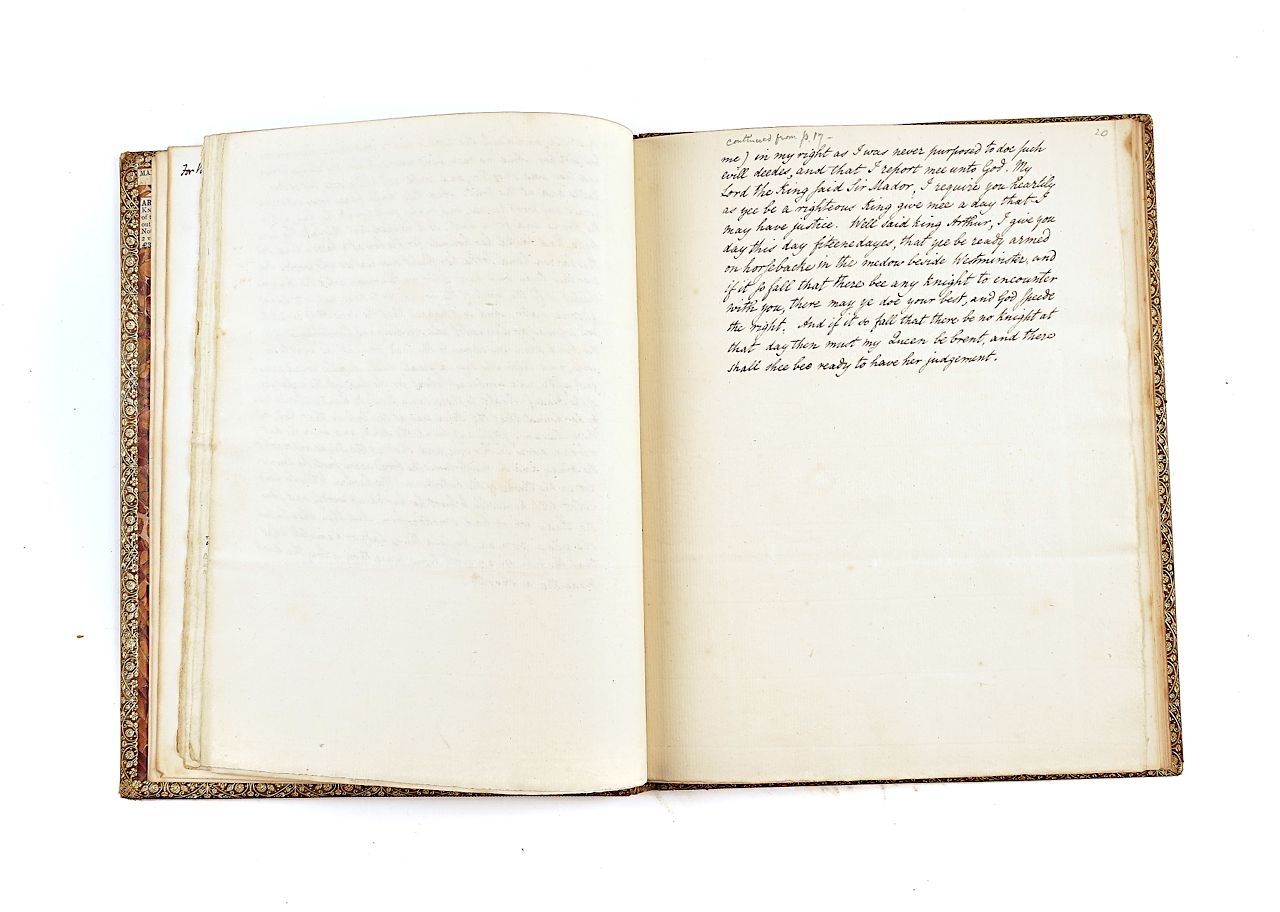 For
MA
AR
Kn
of t
out
No
2 v
£3
continued from p. 17 -
20
me) in my right as I was never purposed to doe such
evill deedes, and that I report mee unto God. My
Lord the King said Sir Mador, I require you heartily
as yee be a righteous King give mee a day that I
may have justice. Well said king Arthur, I give you
day this day fifteene dayes, that yee be ready armed
on horsebacke in the medow beside Westminster, and
if it so fall that there bee any knight to encounter
with you, there may ye doe your best, and God speede
the right. And if it so fall that there be no knight at
that day then must my Queen be brent, and there
shall shee bee ready to have her judgement.